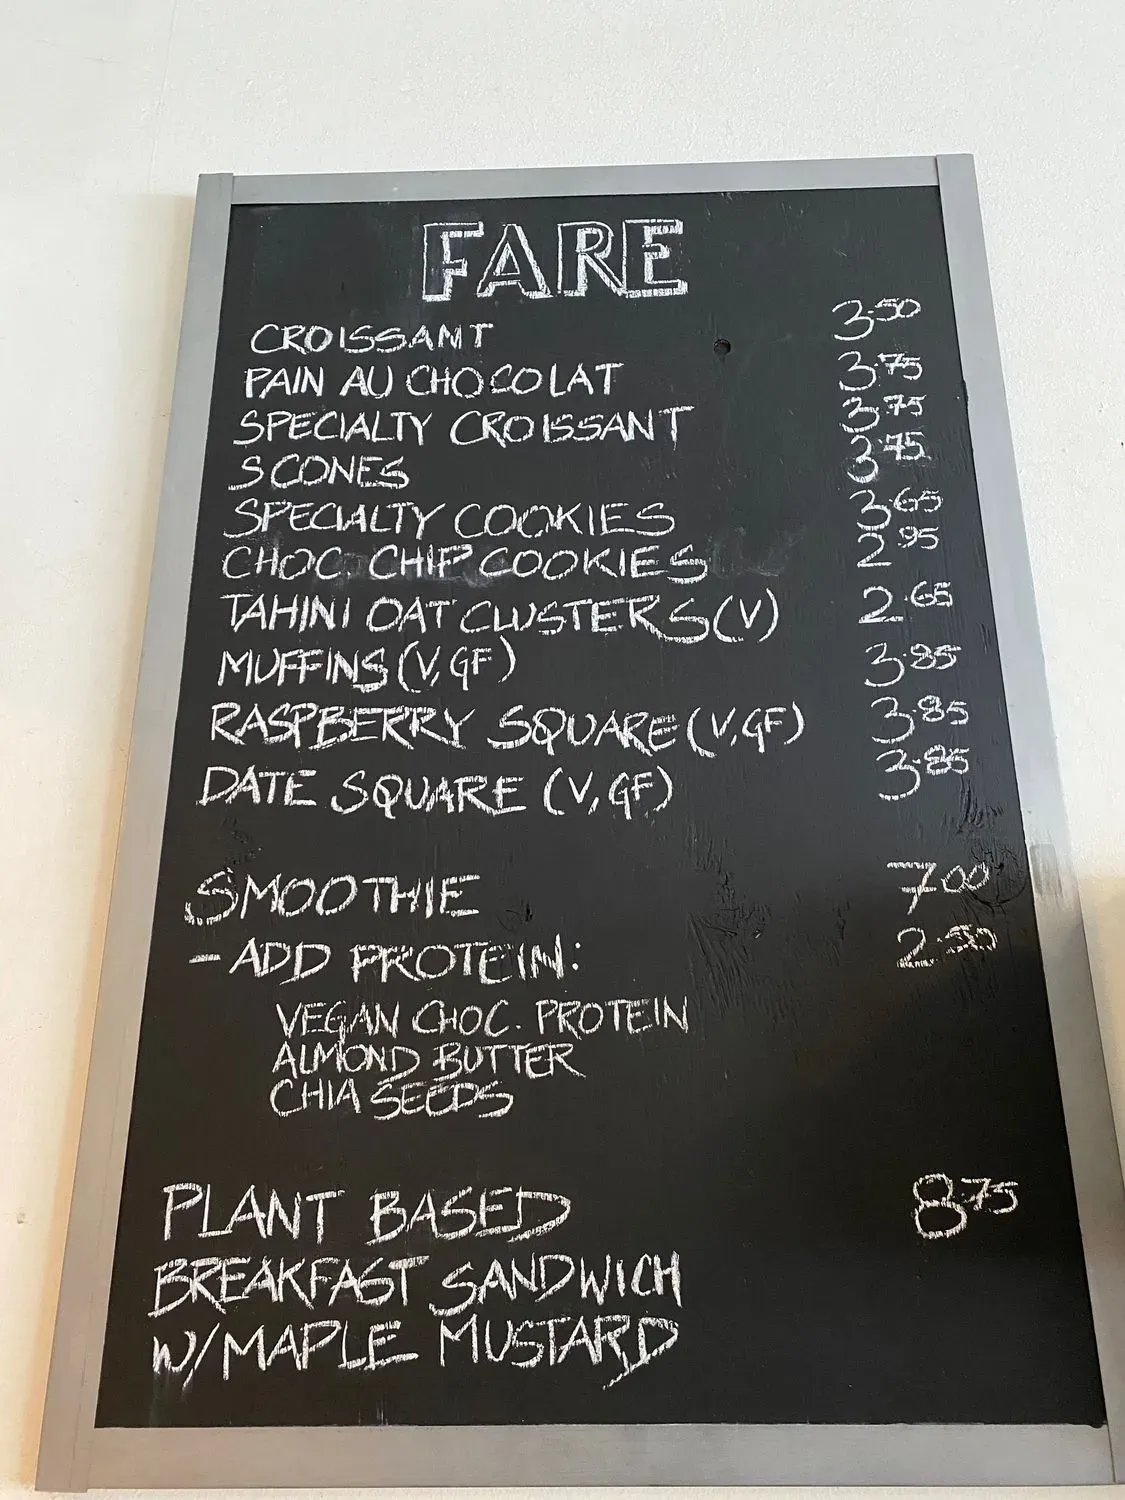 FARE
CROISSANT 3.50
PAIN AU CHOCOLAT 3.75
SPECIALTY CROISSANT 3.75
SCONES 3.75
SPECIALTY COOKIES 3.65
CHOC. CHIP COOKIES 2.95
TAHINI OAT CLUSTERS (V) 2.65
MUFFINS (V, GF) 3.85
RASPBERRY SQUARE (V, GF) 3.85
DATE SQUARE (V, GF) 3.85
SMOOTHIE 7.00
- ADD PROTEIN: 2.50
VEGAN CHOC. PROTEIN
ALMOND BUTTER
CHIA SEEDS
PLANT BASED 8.75
BREAKFAST SANDWICH
W/ MAPLE MUSTARD